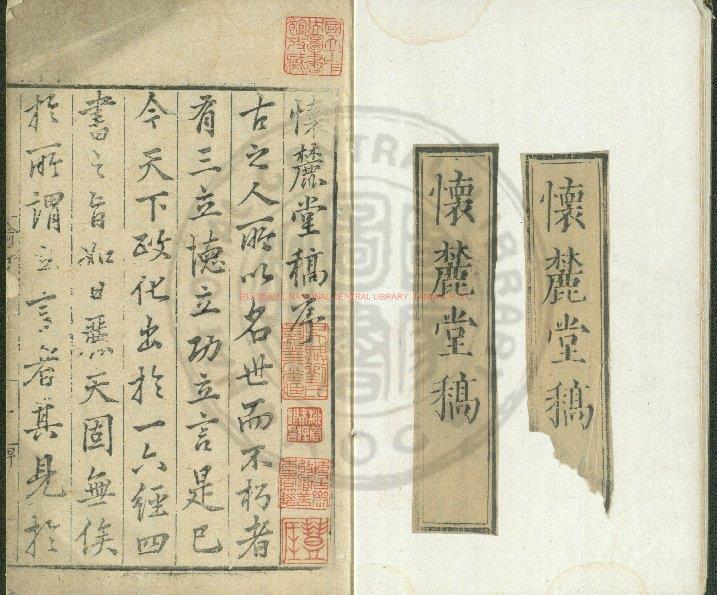 懷麓堂稿
懷麓堂稿
懷麓堂稿序
古之人所以名世而不朽者
有三立德立功立言是已
今天下政化出於一六經四
書之旨如日麗天固無俟
於所謂立言者其見於
NATIONAL CENTRAL LIBRARY